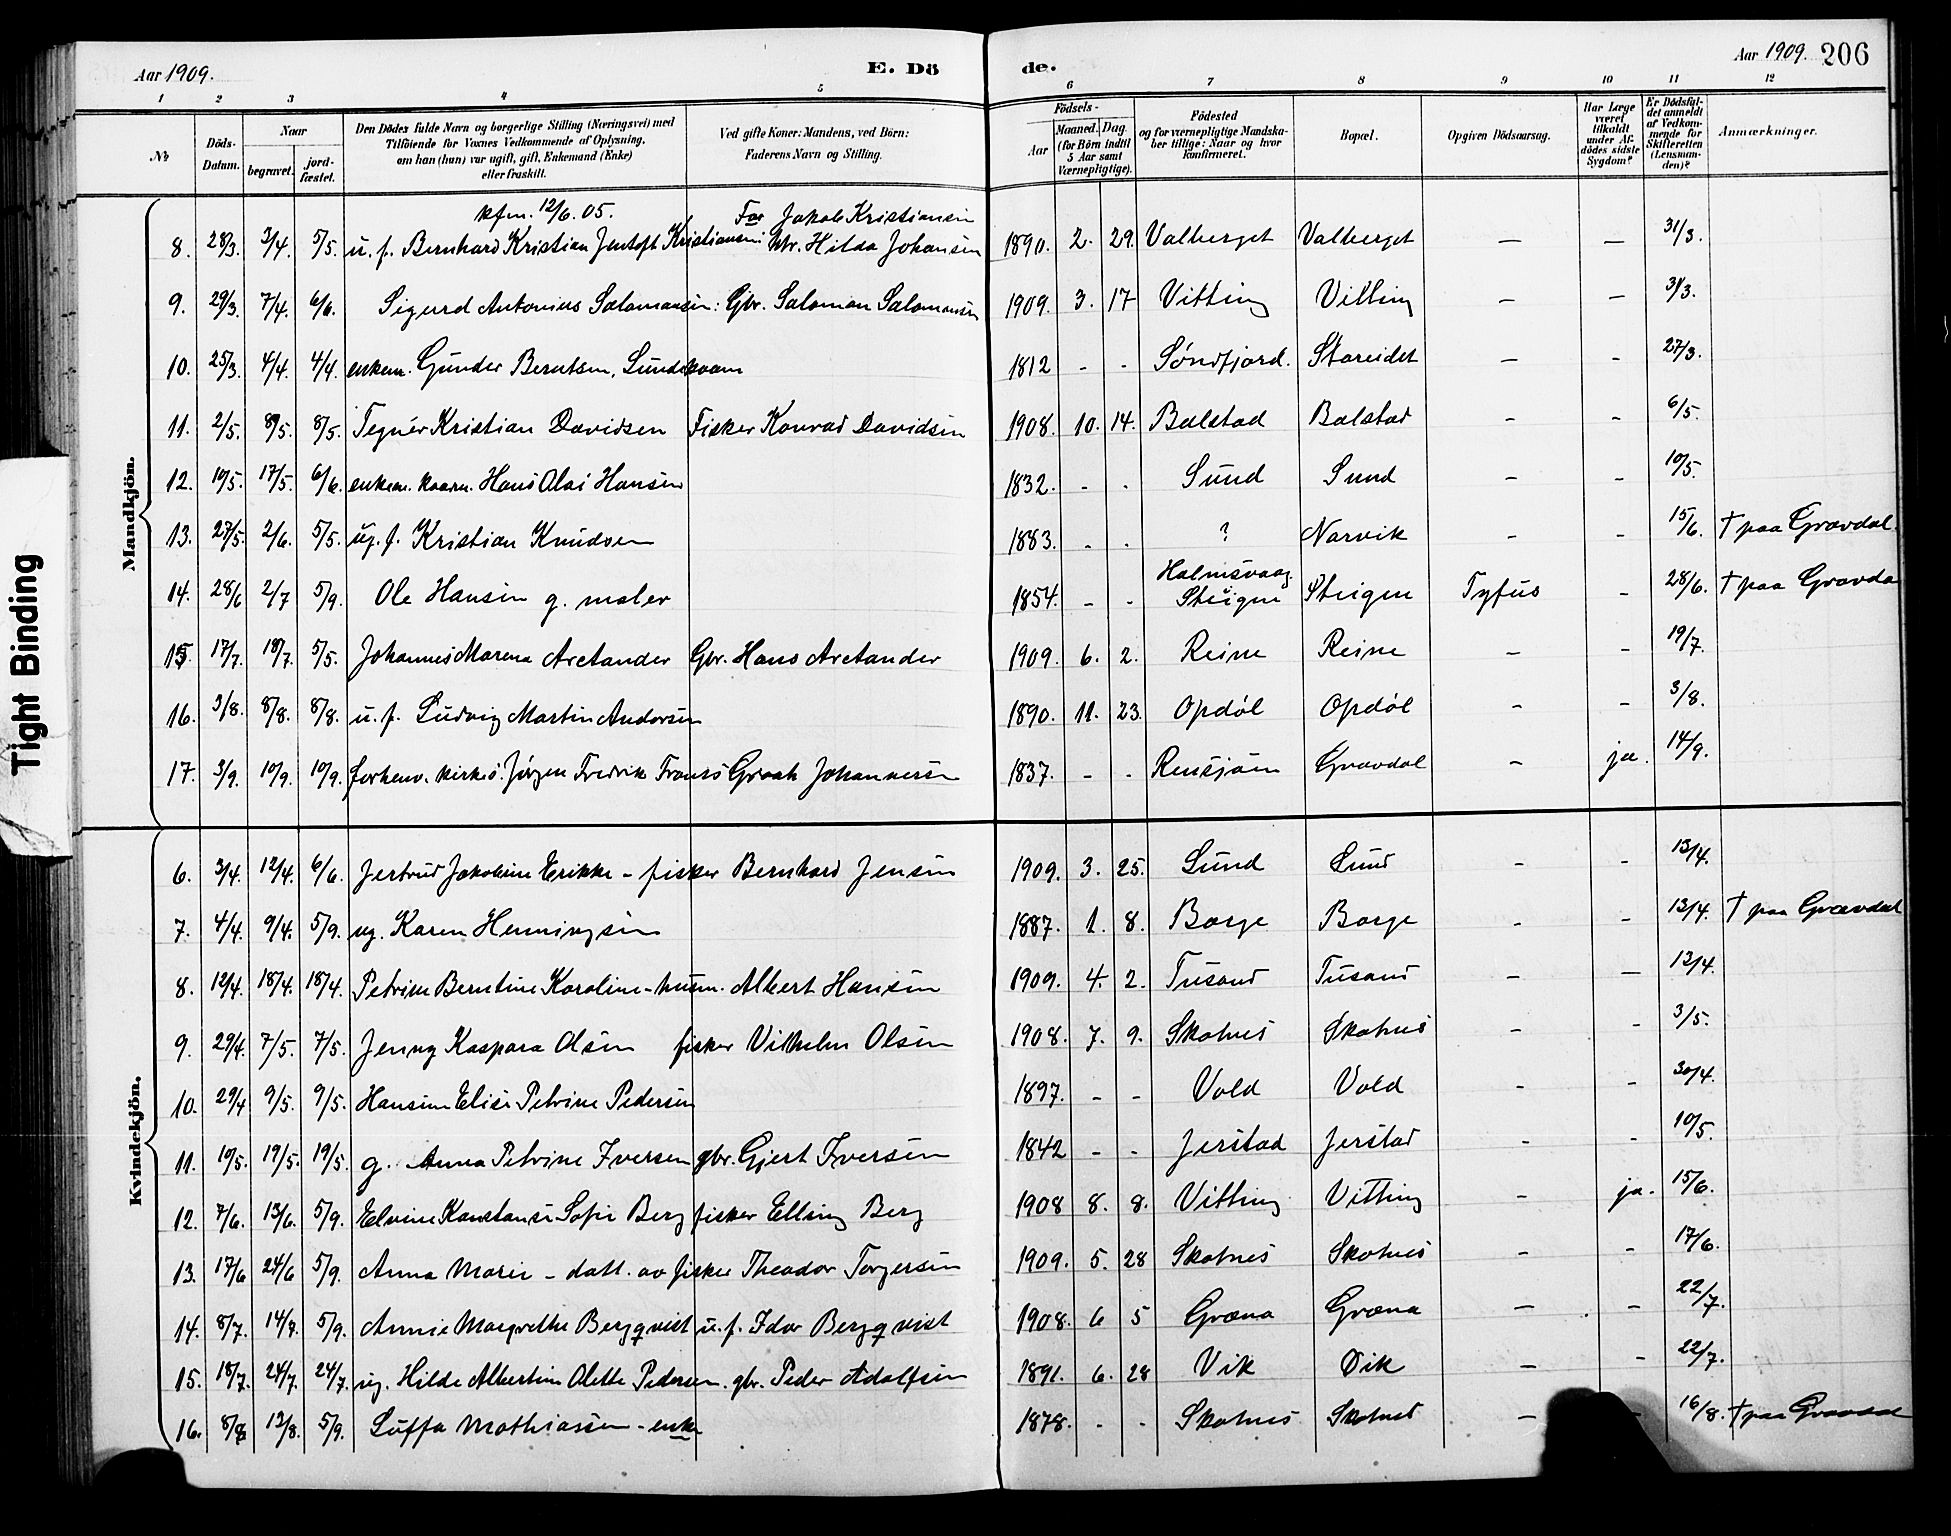 Aar 1909. E. Dö de. Aar 1909. 206
1 2 3 4 5 6 7 8 9 10 11 12
No Döds-Datum. Naar begravet. jordfæstet. Den Dödes fulde Navn og borgerlige Stilling (Næringsvei) med Tilföiende for Voxnes Vedkommende af Oplysning, om han (hun) var ugift, gift, Enkemand (Enke) eller fraskilt. Ved gifte Koner: Mandens, ved Börn: Faderens Navn og Stilling. Födsels- Aar Maaned. Dag (for Börn indtil 5 Aar samt Værnepligtige). Födested og for værnepligtige Mandskaber tillige: Naar og hvor konfirmeret. Bopæl. Opgiven Dödsaarsag. Har Læge været tilkaldt under Afdödes sidste Sygdom? Er Dödsfaldet anmeldt af Vedkommende for Skifteretten (Lensmanden)? Anmærkninger.
Mandkjön.
kfm. 12/6. 05. Far Jakob Kristiansen
8. 28/3. 3/4. 5/5. u. f. Bernhard Kristian Jentoft Kristiansen: Mr. Hilda Johansen 1890. 2. 29. Valberget Valberget — — 31/3.
9. 29/3. 7/4. 6/6. Sigurd Antonius Salomonsen: Gbr. Salomon Salomonsen 1909. 3. 17 Vitting Vitting – – 31/3.
10. 25/3. 4/4. 4/4. enkem. Gunder Berntsen, Sundskvam 1812 - - Søndfjord. Stareidet – - 27/3.
11. 2/5. 8/5. 8/5. Tegnér Kristian Davidsen Fisker Konrad Davidsen 1908. 10. 14. Balstad Balstad - - 6/5.
12. 10/5. 17/5. 6/6. enkem. kaarm. Hans Olai Hansen 1832. - - Sund Sund - - 10/5.
13. 27/5. 2/6. 5/5. ug. f. Kristian Knudsen 1883. - - ? Narvik - - 15/6. † paa Gravdal
14. 28/6 2/7 5/9. Ole Hansen g. maler 1854. - - Halmsvaag. Steigen Steigen Tyfus - 28/6. † paa Gravda
15. 17/7. 18/7. 5/5. Johannes Marena Arctander Gbr. Hans Arctander 1909. 6. 2. Reine Reine – - 19/7.
16. 3/8. 8/8. 8/8. u. f. Ludvig Martin Andorsen 1890. 11. 23. Opdøl Opdøl - - 3/8.
17. 3/9. 10/9. 10/9. forhenv. kirkes. Jørgen Fredrik Frants Graah Johannesen 1837. - - Rensjøen Gravdal - ja. 14/9.
Kvindekjön.
6. 3/4. 12/4. 6/6. Jertrud Jakobine Erikke – fisker Bernhard Jensen 1909. 3. 25. Sund Sund - - 13/4.
7. 4/4. 9/4. 5/9. ug. Karen Henningsen 1887. 1. 8. Borge Borge - - 13/4. † paa Gravdal
8. 12/4. 18/4. 18/4. Petrine Berntine Karoline – husm. Albert Hansen 1909. 4. 2. Tusand Tusand - — 13/4.
9. 29/4. 7/5. 7/5. Jenny Kaspara Olsen fisker Vilhelm Olsen 1908. 7. 9. Skotnes Skotnes - - 3/5.
10. 29/4 9/5. 9/5. Hansine Elise Petrine Pedersen 1897. - - Vold Vold - - 30/4.
11. 10/5. 19/5. 19/5. g. Anna Petrine Iversen gbr. Gjert Iversen 1842 - - Jerstad Jerstad - - 10/5.
12. 7/6. 13/6. 5/9. Elvine Konstanse Sofie Berg fisker Elling Berg 1908 8. 8. Vitting Vitting - ja. 15/6.
13. 17/6 24/6 5/9. Anna Marie – datt. av fisker Theodor Torgersen 1909. 5. 28 Skotnes Skotnes - - 17/6.
14. 8/7. 14/7. 5/9. Annie Margrethe Bergqvist u. f. Idar Bergqvist 1908. 6 5 Græna Græna — – 22/7.
15. 18/7. 24/7. 24/7. ug. Hilde Albertine Olette Pedersen. gbr. Peder Adolfsen 1891. 6. 28 Vik Vik — - 22/7.
16. 8/8. 13/8. 5/9. Luffa Mathiassen – enke 1878. - - Skotnes Skotnes – - 16/8. † paa Gravdal
Tight Binding